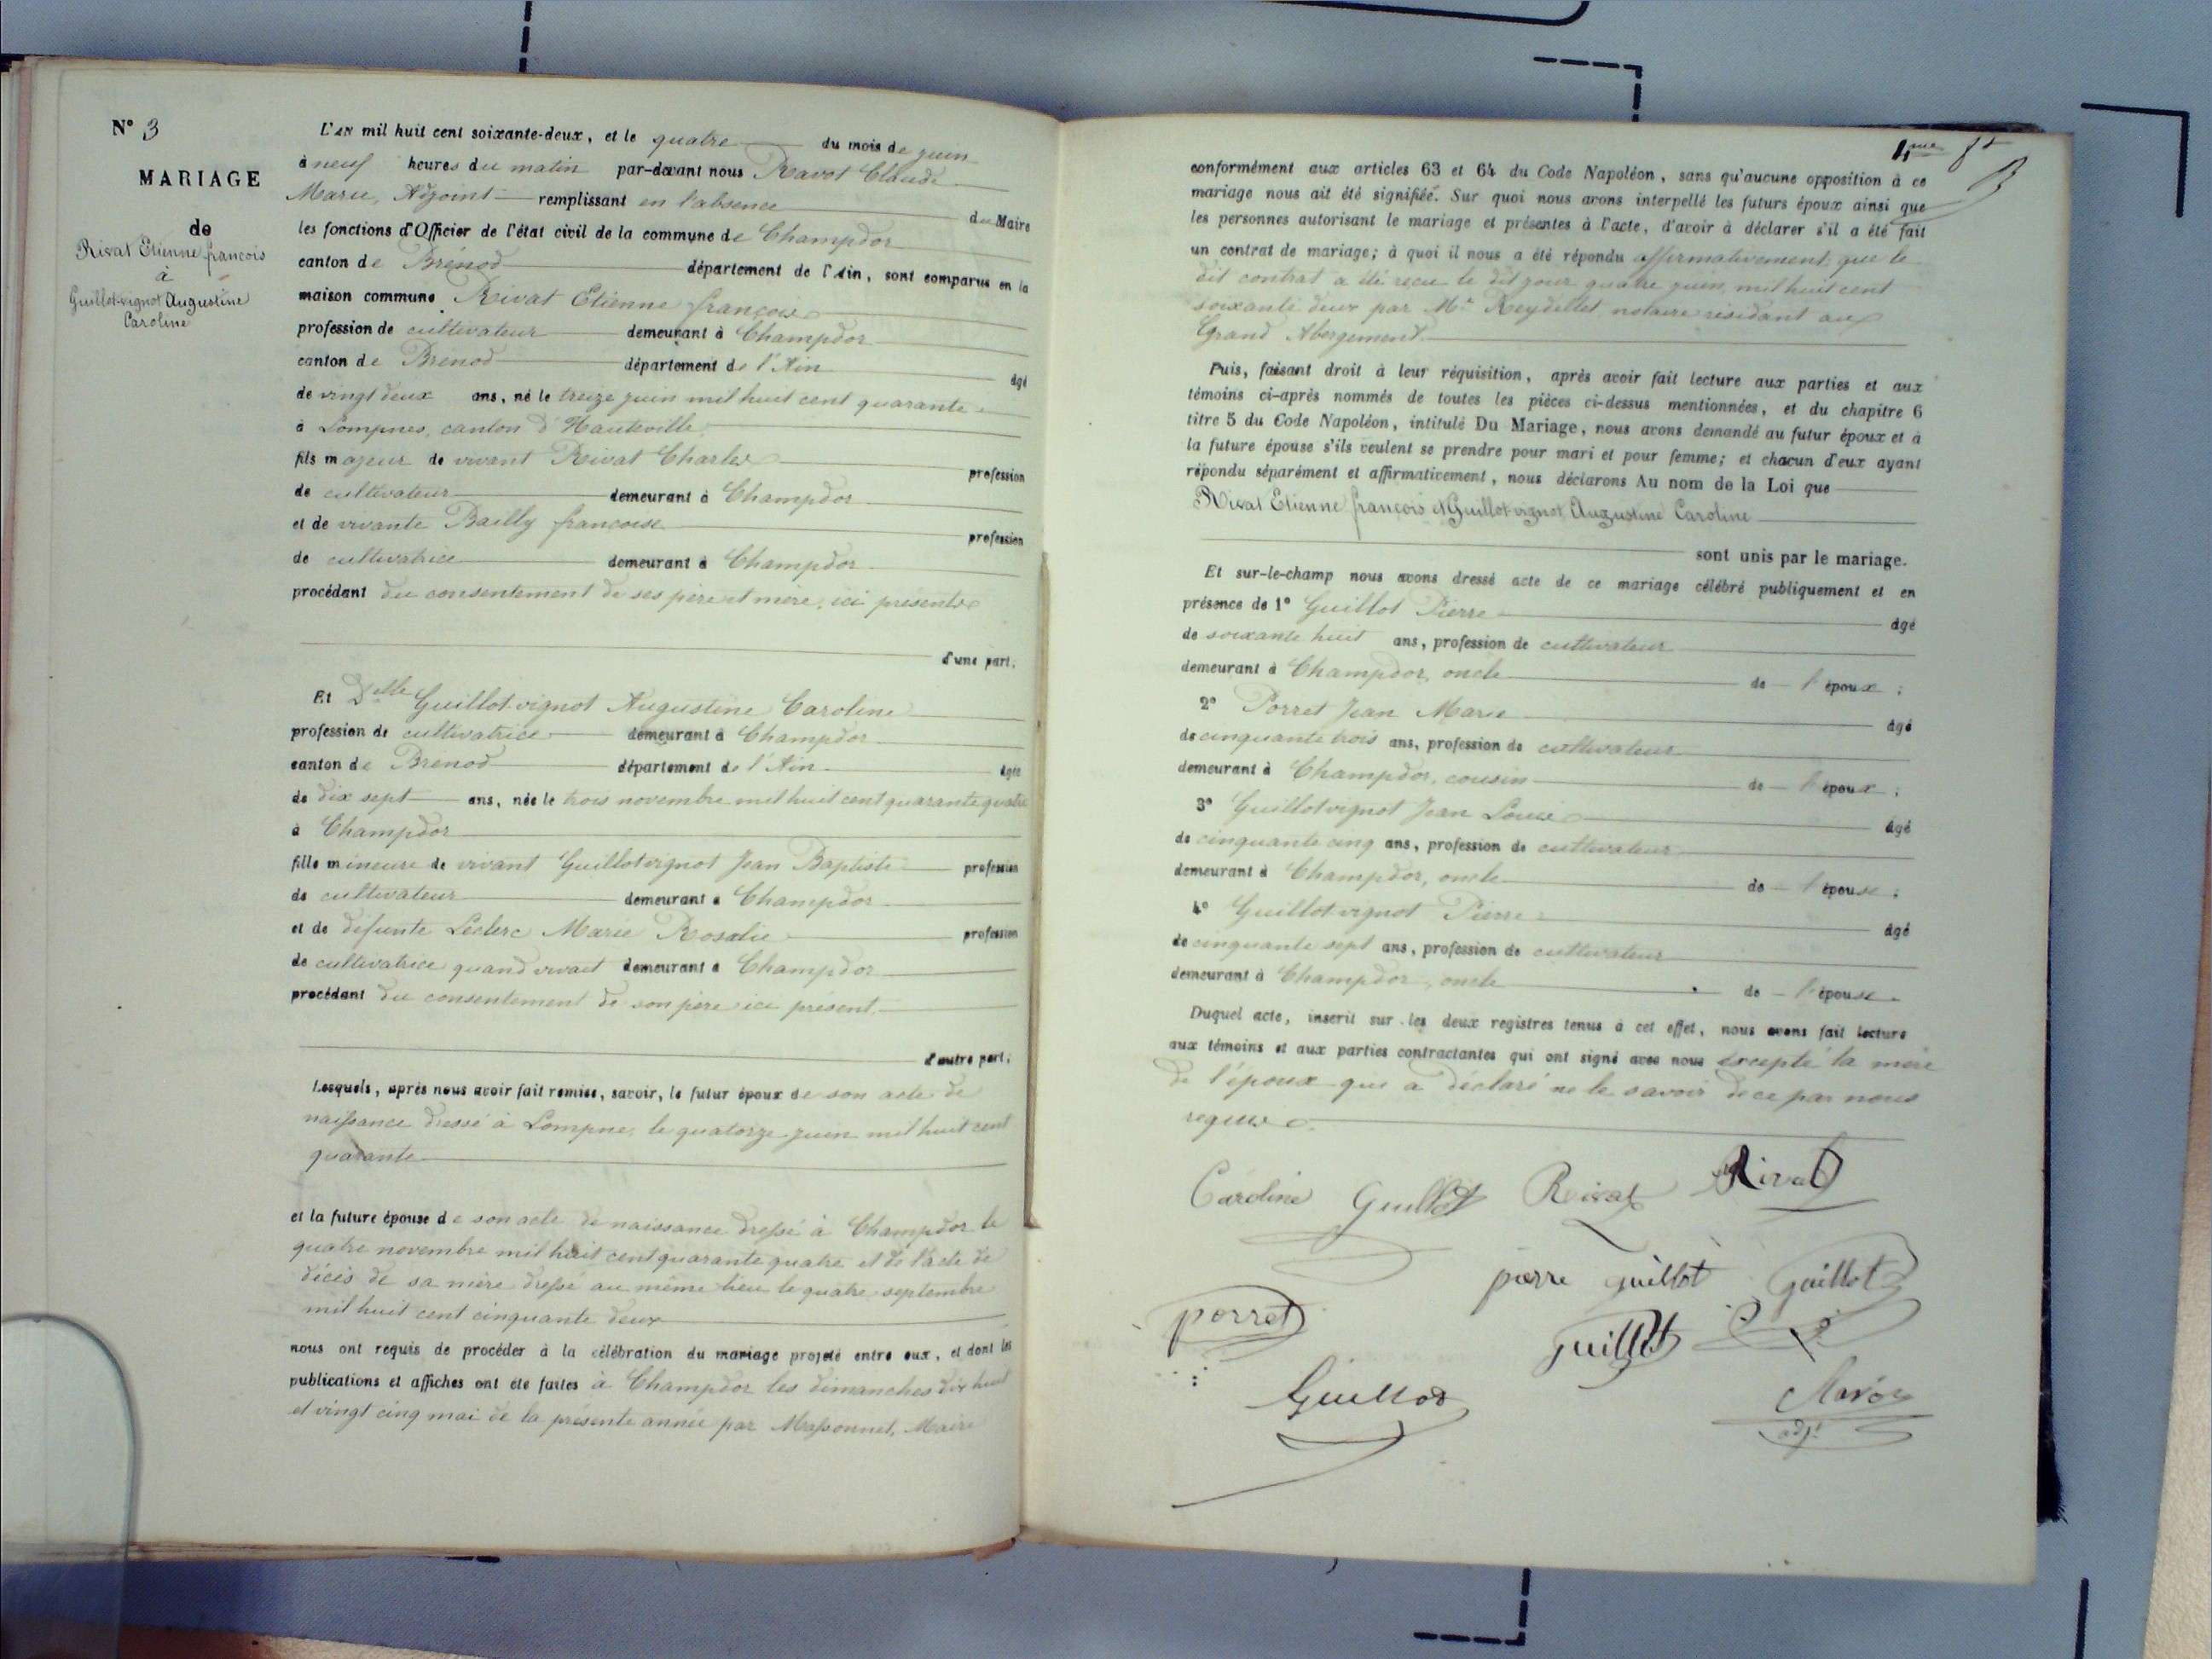 N° 3
MARIAGE
de
Rivat Etienne françois
à
Guillot-vignot Augustine
Caroline
L'AN mil huit cent soixante-deux, et le quatre du mois de juin
à neuf heures du matin par-devant nous Ravot Claude
Marie, Adjoint remplissant en l'absence du Maire
les fonctions d'Officier de l'état civil de la commune de Champdor
canton de Brénod département de l'Ain, sont comparus en la
maison commune Rivat Etienne françois
profession de cultivateur demeurant à Champdor
canton de Brénod département de l'Ain âgé
de vingt deux ans, né le treize juin mil huit cent quarante
à Lompnes, canton d'Hauteville
fils majeur de vivant Rivat Charles profession
de cultivateur demeurant à Champdor
et de vivante Bailly françoise profession
de cultivatrice demeurant à Champdor
procédant du consentement de ses père et mère, ici présents
d'une part,
Et Delle Guillot-vignot Augustine Caroline
profession de cultivatrice demeurant à Champdor
canton de Brénod département de l'Ain âgée
de dix sept ans, née le trois novembre mil huit cent quarante quatre
à Champdor
fille mineure de vivant Guillotvignot Jean Baptiste profession
de cultivateur demeurant à Champdor
et de défunte Leclerc Marie Rosalie profession
de cultivatrice quand vivait demeurant à Champdor
procédant du consentement de son père ici présent
d'autre part;
Lesquels, après nous avoir fait remise, savoir, le futur époux de son acte de
naissance dressé à Lompnes, le quatorze juin mil huit cent
quarante
et la future épouse de son acte de naissance dressé à Champdor le
quatre novembre mil huit cent quarante quatre et de l'acte de
décès de sa mère dressé au même lieu le quatre septembre
mil huit cent cinquante deux
nous ont requis de procéder à la célébration du mariage projeté entre eux, et dont les
publications et affiches ont été faites à Champdor les dimanches dix huit
et vingt cinq mai de la présente année par Massonnet, Maire
4me
conformément aux articles 63 et 64 du Code Napoléon, sans qu'aucune opposition à ce
mariage nous ait été signifiée. Sur quoi nous avons interpellé les futurs époux ainsi que
les personnes autorisant le mariage et présentes à l'acte, d'avoir à déclarer s'il a été fait
un contrat de mariage; à quoi il nous a été répondu affirmativement, que le
dit contrat a été reçu le dit jour quatre juin, mil huit cent
soixante deux par Me Reydellet, notaire résidant au
Grand Abergement
Puis, faisant droit à leur réquisition, après avoir fait lecture aux parties et aux
témoins ci-après nommés de toutes les pièces ci-dessus mentionnées, et du chapitre 6
titre 5 du Code Napoléon, intitulé Du Mariage, nous avons demandé au futur époux et à
la future épouse s'ils veulent se prendre pour mari et pour femme; et chacun d'eux ayant
répondu séparément et affirmativement, nous déclarons Au nom de la Loi que
Rivat Etienne françois et Guillot-vignot Augustine Caroline
sont unis par le mariage.
Et sur-le-champ nous avons dressé acte de ce mariage célébré publiquement et en
présence de 1° Guillot Pierre âgé
de soixante huit ans, profession de cultivateur
demeurant à Champdor, oncle de l'époux;
2° Porret Jean Marie âgé
de cinquante trois ans, profession de cultivateur
demeurant à Champdor, cousin de l'époux;
3° Guillotvignot Jean Louis âgé
de cinquante cinq ans, profession de cultivateur
demeurant à Champdor, oncle de l'épouse;
4° Guillotvignot Pierre âgé
de cinquante sept ans, profession de cultivateur
demeurant à Champdor, oncle de l'épouse.
Duquel acte, inscrit sur les deux registres tenus à cet effet, nous avons fait lecture
aux témoins et aux parties contractantes qui ont signé avec nous excepté la mère
de l'époux qui a déclaré ne le savoir de ce par nous
requis
Caroline Guillot Rivat Rivat
pierre guillot Guillot
porret guillot
Guillot Ravot
adjt